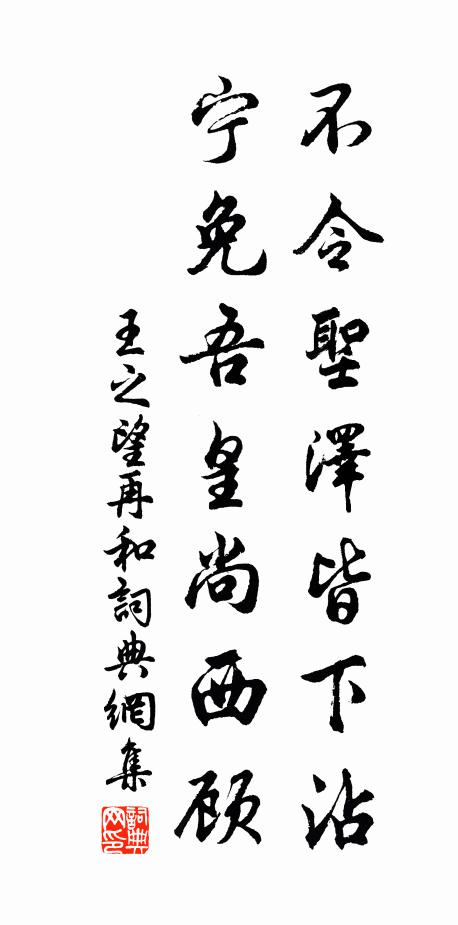 不令聖澤皆下沾
宁免吾皇尚西顾
王之望再和詞典網集
詞典網印